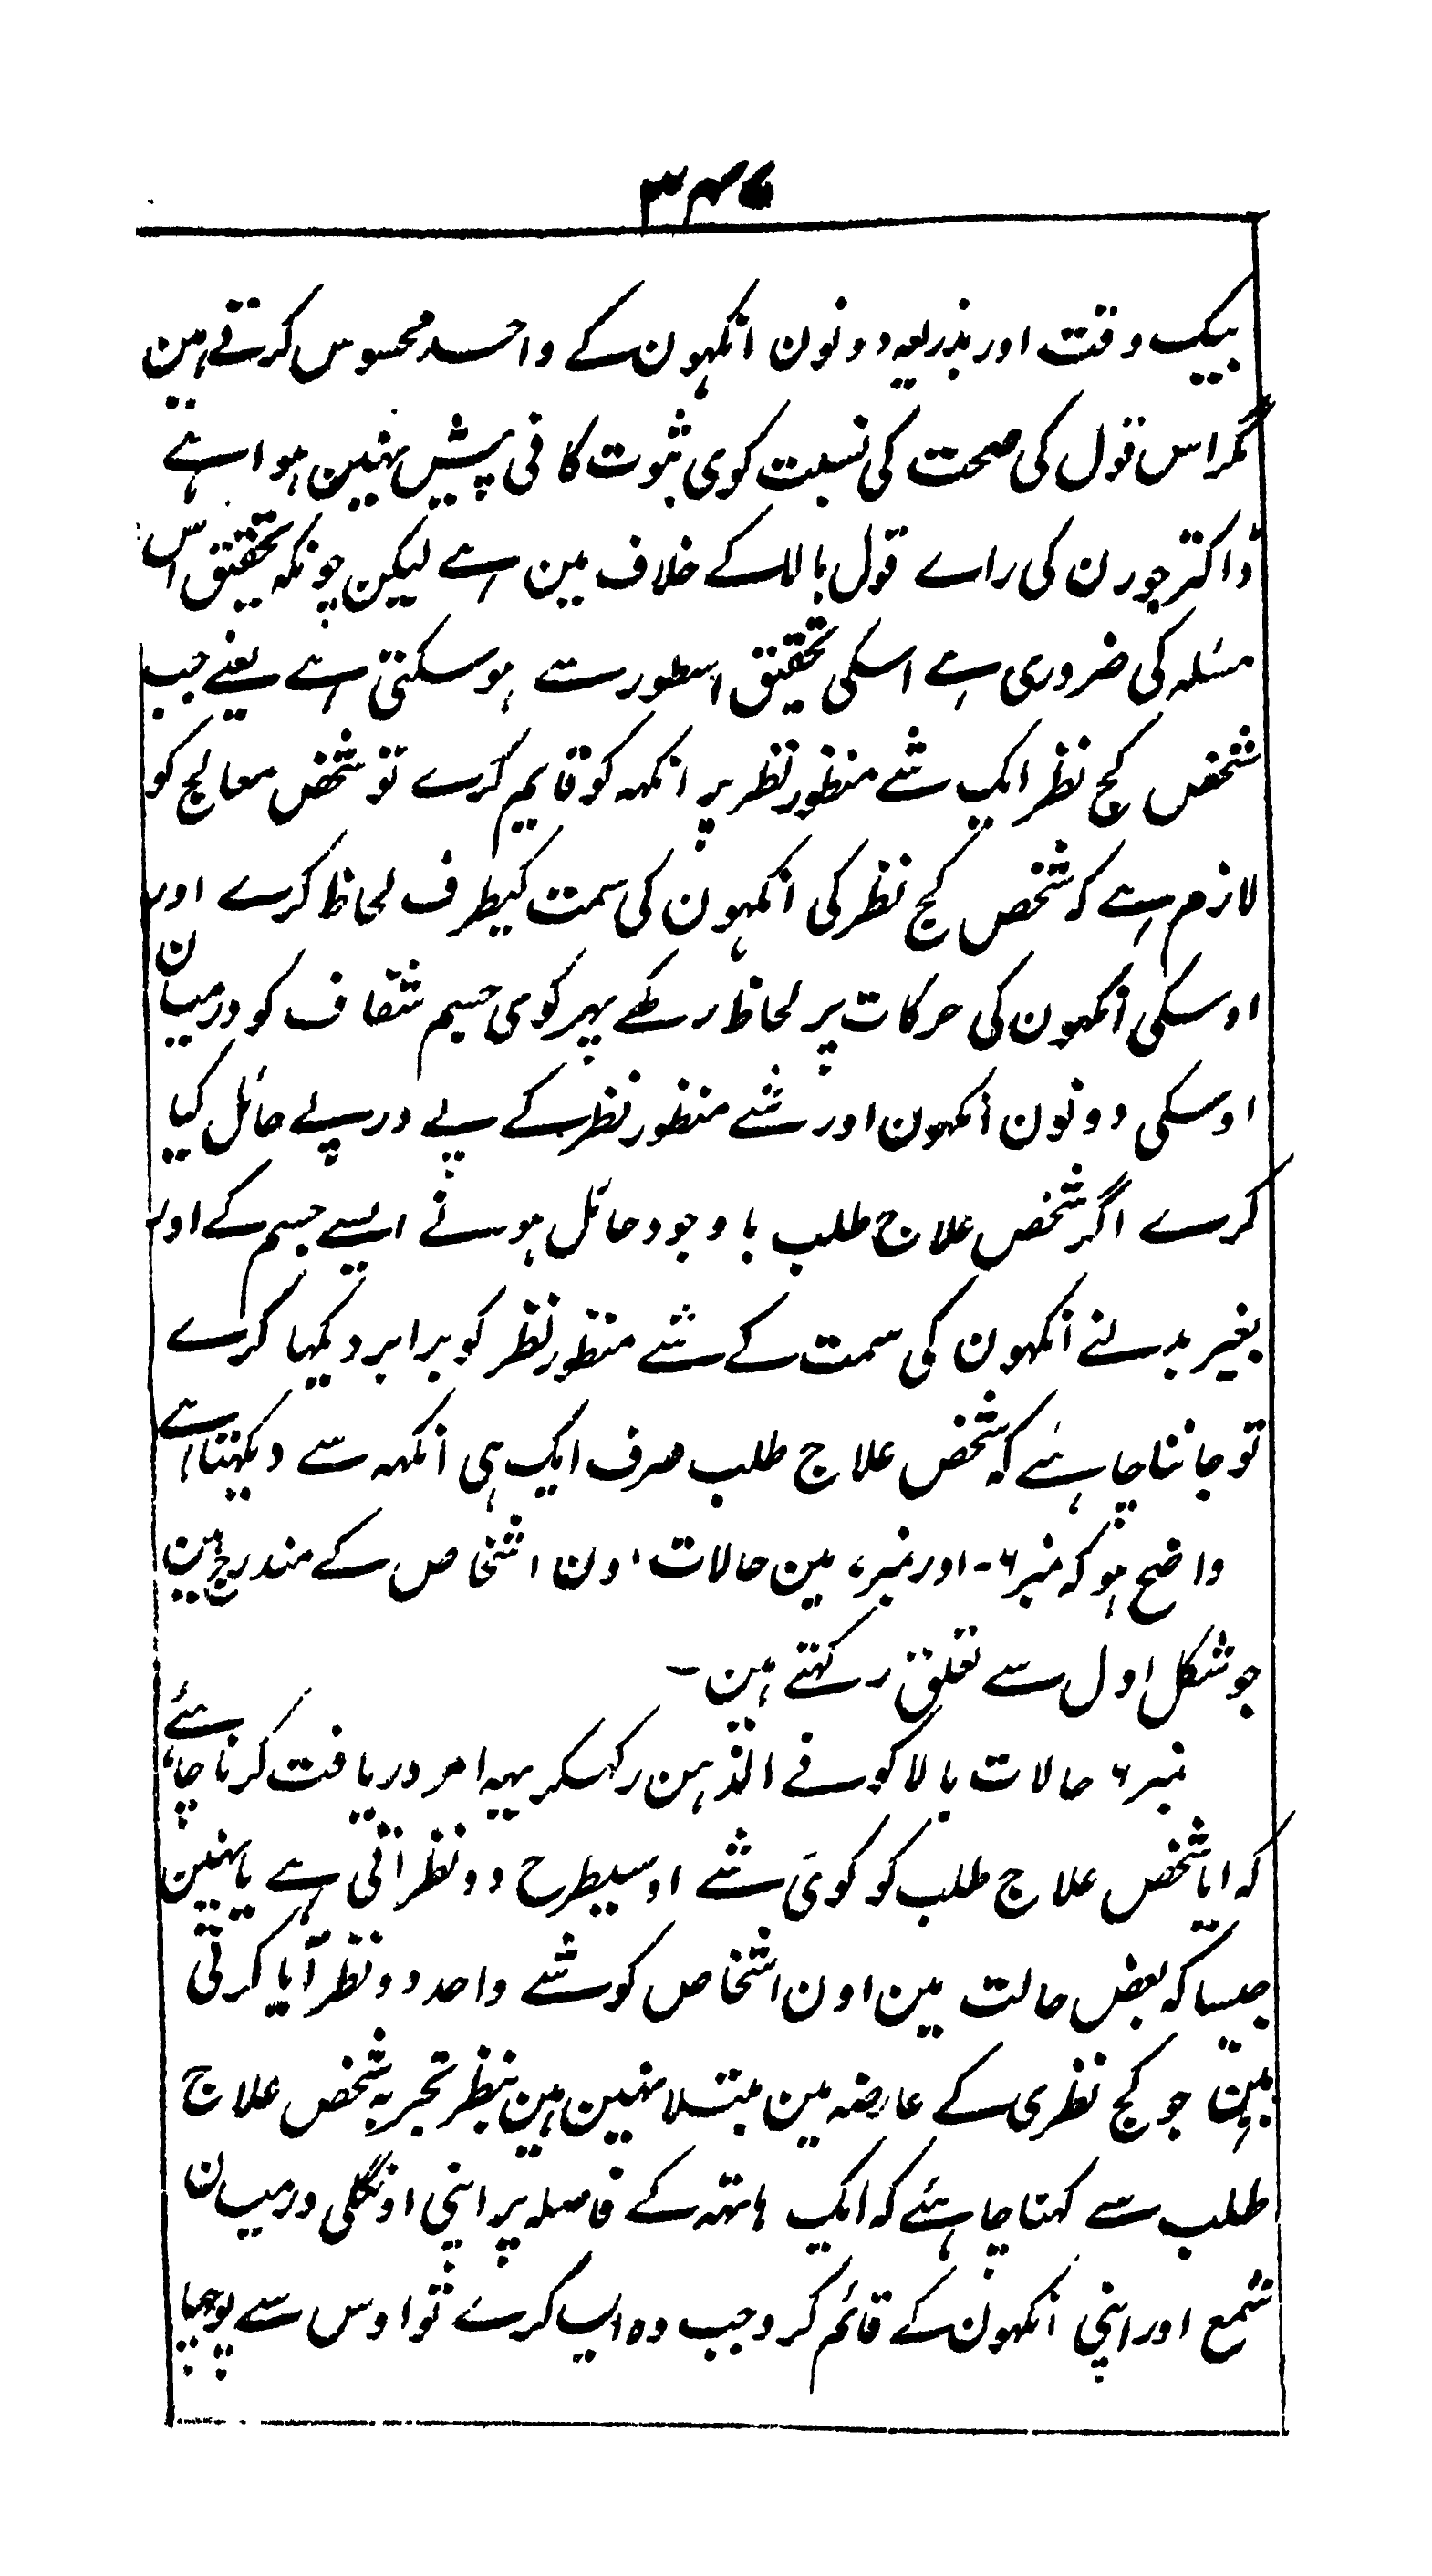 بیک وقت اور بذریعہ دونون انکہون کے واحد محسوس کرتے ہین
مگر اس قول کی صحت کی نسبت کوی ثبوت کافی پیش نہین ہوا ہے
ڈاکتر جورن کی راے قول بالا کے خلاف مین ہے لیکن چونکہ تحقیق اس
مسٔلہ کی ضروری ہے اسکی تحقیق اسطور سے ہو سکتی ہے یعنے جب
شخص کج نظر ایک شے منظور نظر پر انکہہ کو قایم کرے تو شخص معالج کو
لازم ہے کہ شخص کج نظر کی انکہون کی سمت کیطرف لحاظ کرے اور
اوسکی انکہون کی حرکات پر لحاظ رکے پہر کوی جسم شفاف کو درمیان
اوسکی دونون انکہون اور شے منظور نظر کے پے درپے حائل کیا
کرے اگر شخص علاج طلب باوجود حائل ہونے ایسے جسم کے اور
بغیر بدلنے انکہون کی سمت کے شے منظور نظر کو برابر دیکہا کرے
تو جاننا چاہئے کہ شخص علاج طلب صرف ایک ہی انکہہ سے دیکہتا ہے
واضح ہو کہ نمبر ۶- اور نمبر ۷ مین حالات اون اشخاص کے مندرج ہین
جو شکل اول سے تعلق رکہتے ہین -
نمبر ۶ حالات بالا کو فے الذہن رکہکر یہہ امر دریافت کرنا چاہئے
کہ ایا شخص علاج طلب کو کوئ شے اوسیطرح دو نظر اتی ہے یا نہین
جیسا کہ بعض حالت مین اون اشخاص کو شے واحد دو نظر آیا کرتی
ہین جو کج نظری کے عارضہ مین مبتلا نہین ہین بنظر تجربہ شخص علاج
طلب سے کہنا چاہئے کہ ایک ہاتہہ کے فاصلہ پر اپنی اونگلی درمیان
شمع اور اپنی انکہون کے قائم کرو جب وہ ایسا کرے تو اوس سے پوچہا